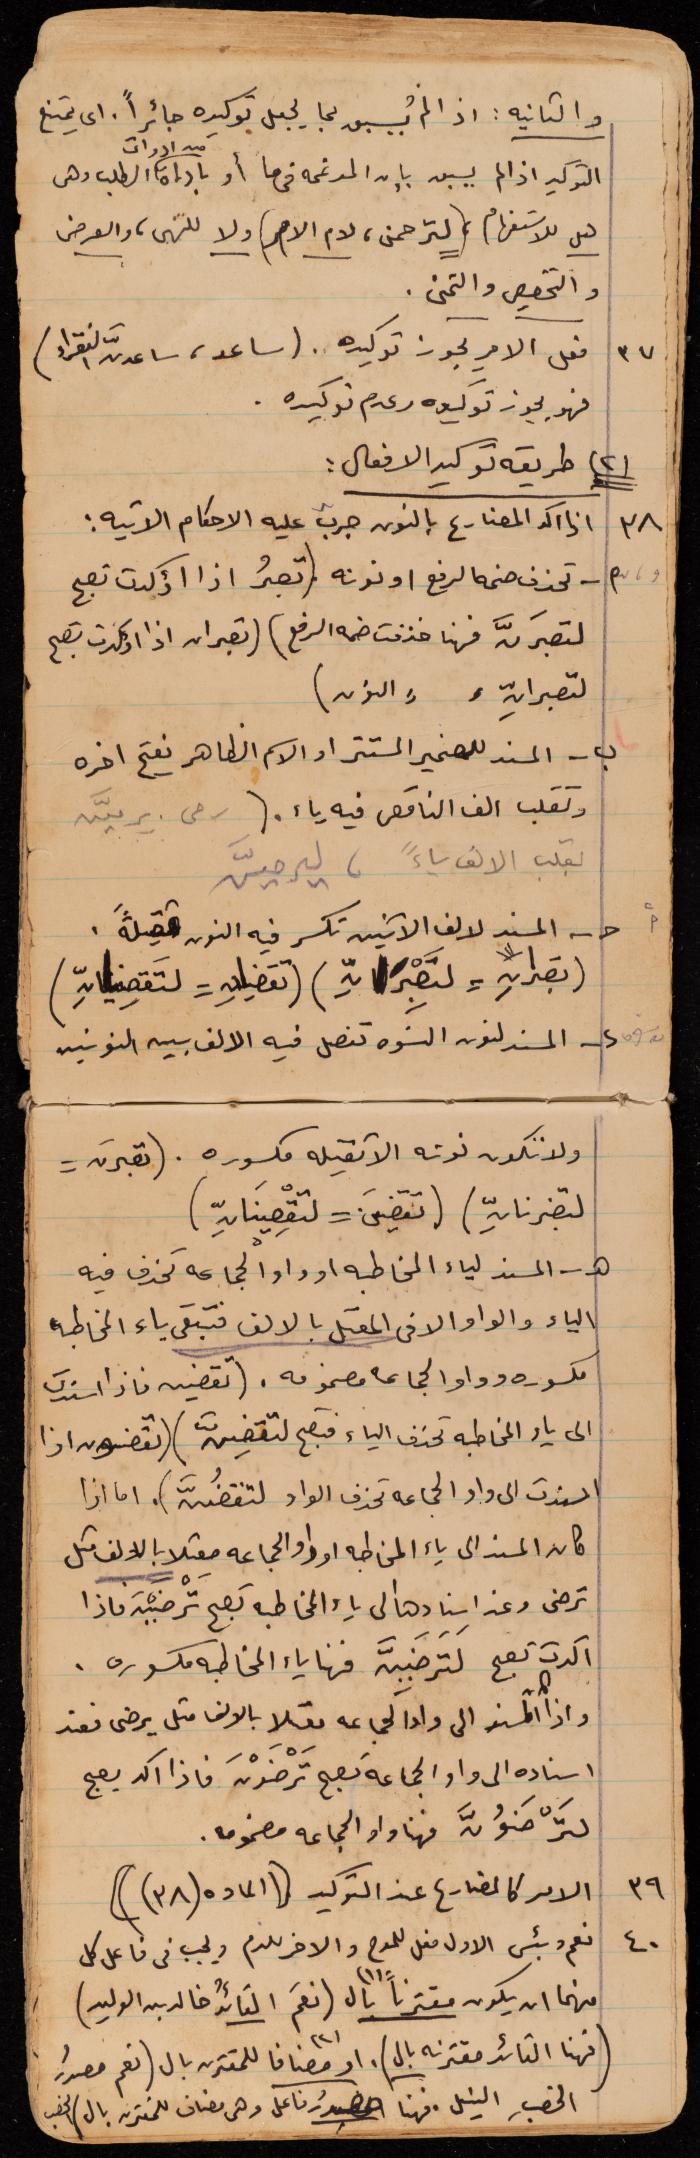 والثانيه : اذا لم يُسبق بما يجعل توكيده جائزاً . اى يمتنع
التوكيد اذا لم يسبق بإن المدغمه فى ما أو باداة من ادوات الطلب وهى
هل للاستفهام ، (لترحمن ، لام الامر) ولا للنهى ، والعرض
والتحضيض والتمنى .
٣٧ فعل الامر يجوز توكيده .. (ساعد ، ساعدنّ الفقراء)
فهو يجوز توكيده وعدم توكيده .
(٢) طريقه توكيد الافعال :
٣٨ اذا اكد المضارع بالنون جرت عليه الاحكام الاتيه :
ـ تحذف ضمه الرفع او نونه . (تصبرُ اذا اؤكدت تصبح
لتصبرَنَّ فهنا حذفت ضمه الرفع) (تصبران اذا اوكدت تصبح
لتصبرانِّ ء ء النون)
ب ـ المسند للضمير المستتر او الاسم الظاهر يفتح اخره
وتقلب الف الناقص فيه ياء . (رمى . يرمينَّ
بقلب الالف ياءً ، ليرمينَّ
حـ ـ المسند لالف الاثنين تكسر فيه النون ثقيلةً .
(تصبرانِ = لتَصْبِرانِّ) (تقضيانِ = لتَقضِيانِّ)
د ـ المسند لنون النسوه تفصل فيه الالف بين النونين
ولا تكون نونه الا ثقيله مكسوره . (تصبرن =
لتصبرنانِّ) (تقضينَ = لتَقْضِينَانِّ)
هـ ـ المسند لياء المخاطبه او واو الجماعه تحذف فيه
الياء والواو الا فى المعتل بالالف فتبقى ياء المخاطبه
مكسوره وواو الجماعه مضمومه . (تقضين فاذا اسندت
الى ياء المخاطبه تحذف الياء فتصبح لتقضِنَّ) (تقضون اذا
اسندت الى واو الجماعه تحذف الواو لتقضُنَّ) . اما اذا
كان المسند الى ياء المخاطبه او واو الجماعه معتلا بالالف مثل
ترضى وعند اسنادها الى ياء المخاطبه تصبح تَرْضَيْنَ فاذا
اكدت تصبح لَتَرضَيِنَّ فهنا ياء المخاطبه مكسوره .
واذا المسند الى واو الجماعه معتلا بالالف مثل يرضى فعند
اسناده الى واو الجماعة تصبح تَرْضَوْنَ فاذا اكد يصبح
لتَرْضَوُنَّ فهنا واو الجماعه مضمومه .
٣٩ الامر كالمضارع عند التوكيد ((الماده (٣٨)))
٤٠ نعم وبئس الاول فعل للمدح والاخر للذم ويجب فى فاعل كل
منهما ان يكون (١) مقترناً بال (نعمَ القائدُ خالد بن الوليد)
(فهنا القائد مقترنه بال) . او (٢) مضافا للمقترن بال (نعم مصدرُ
الخصبِ النيل . فهنا مصدرُ فاعل وهى مضاف للمقترن بال) الخصب